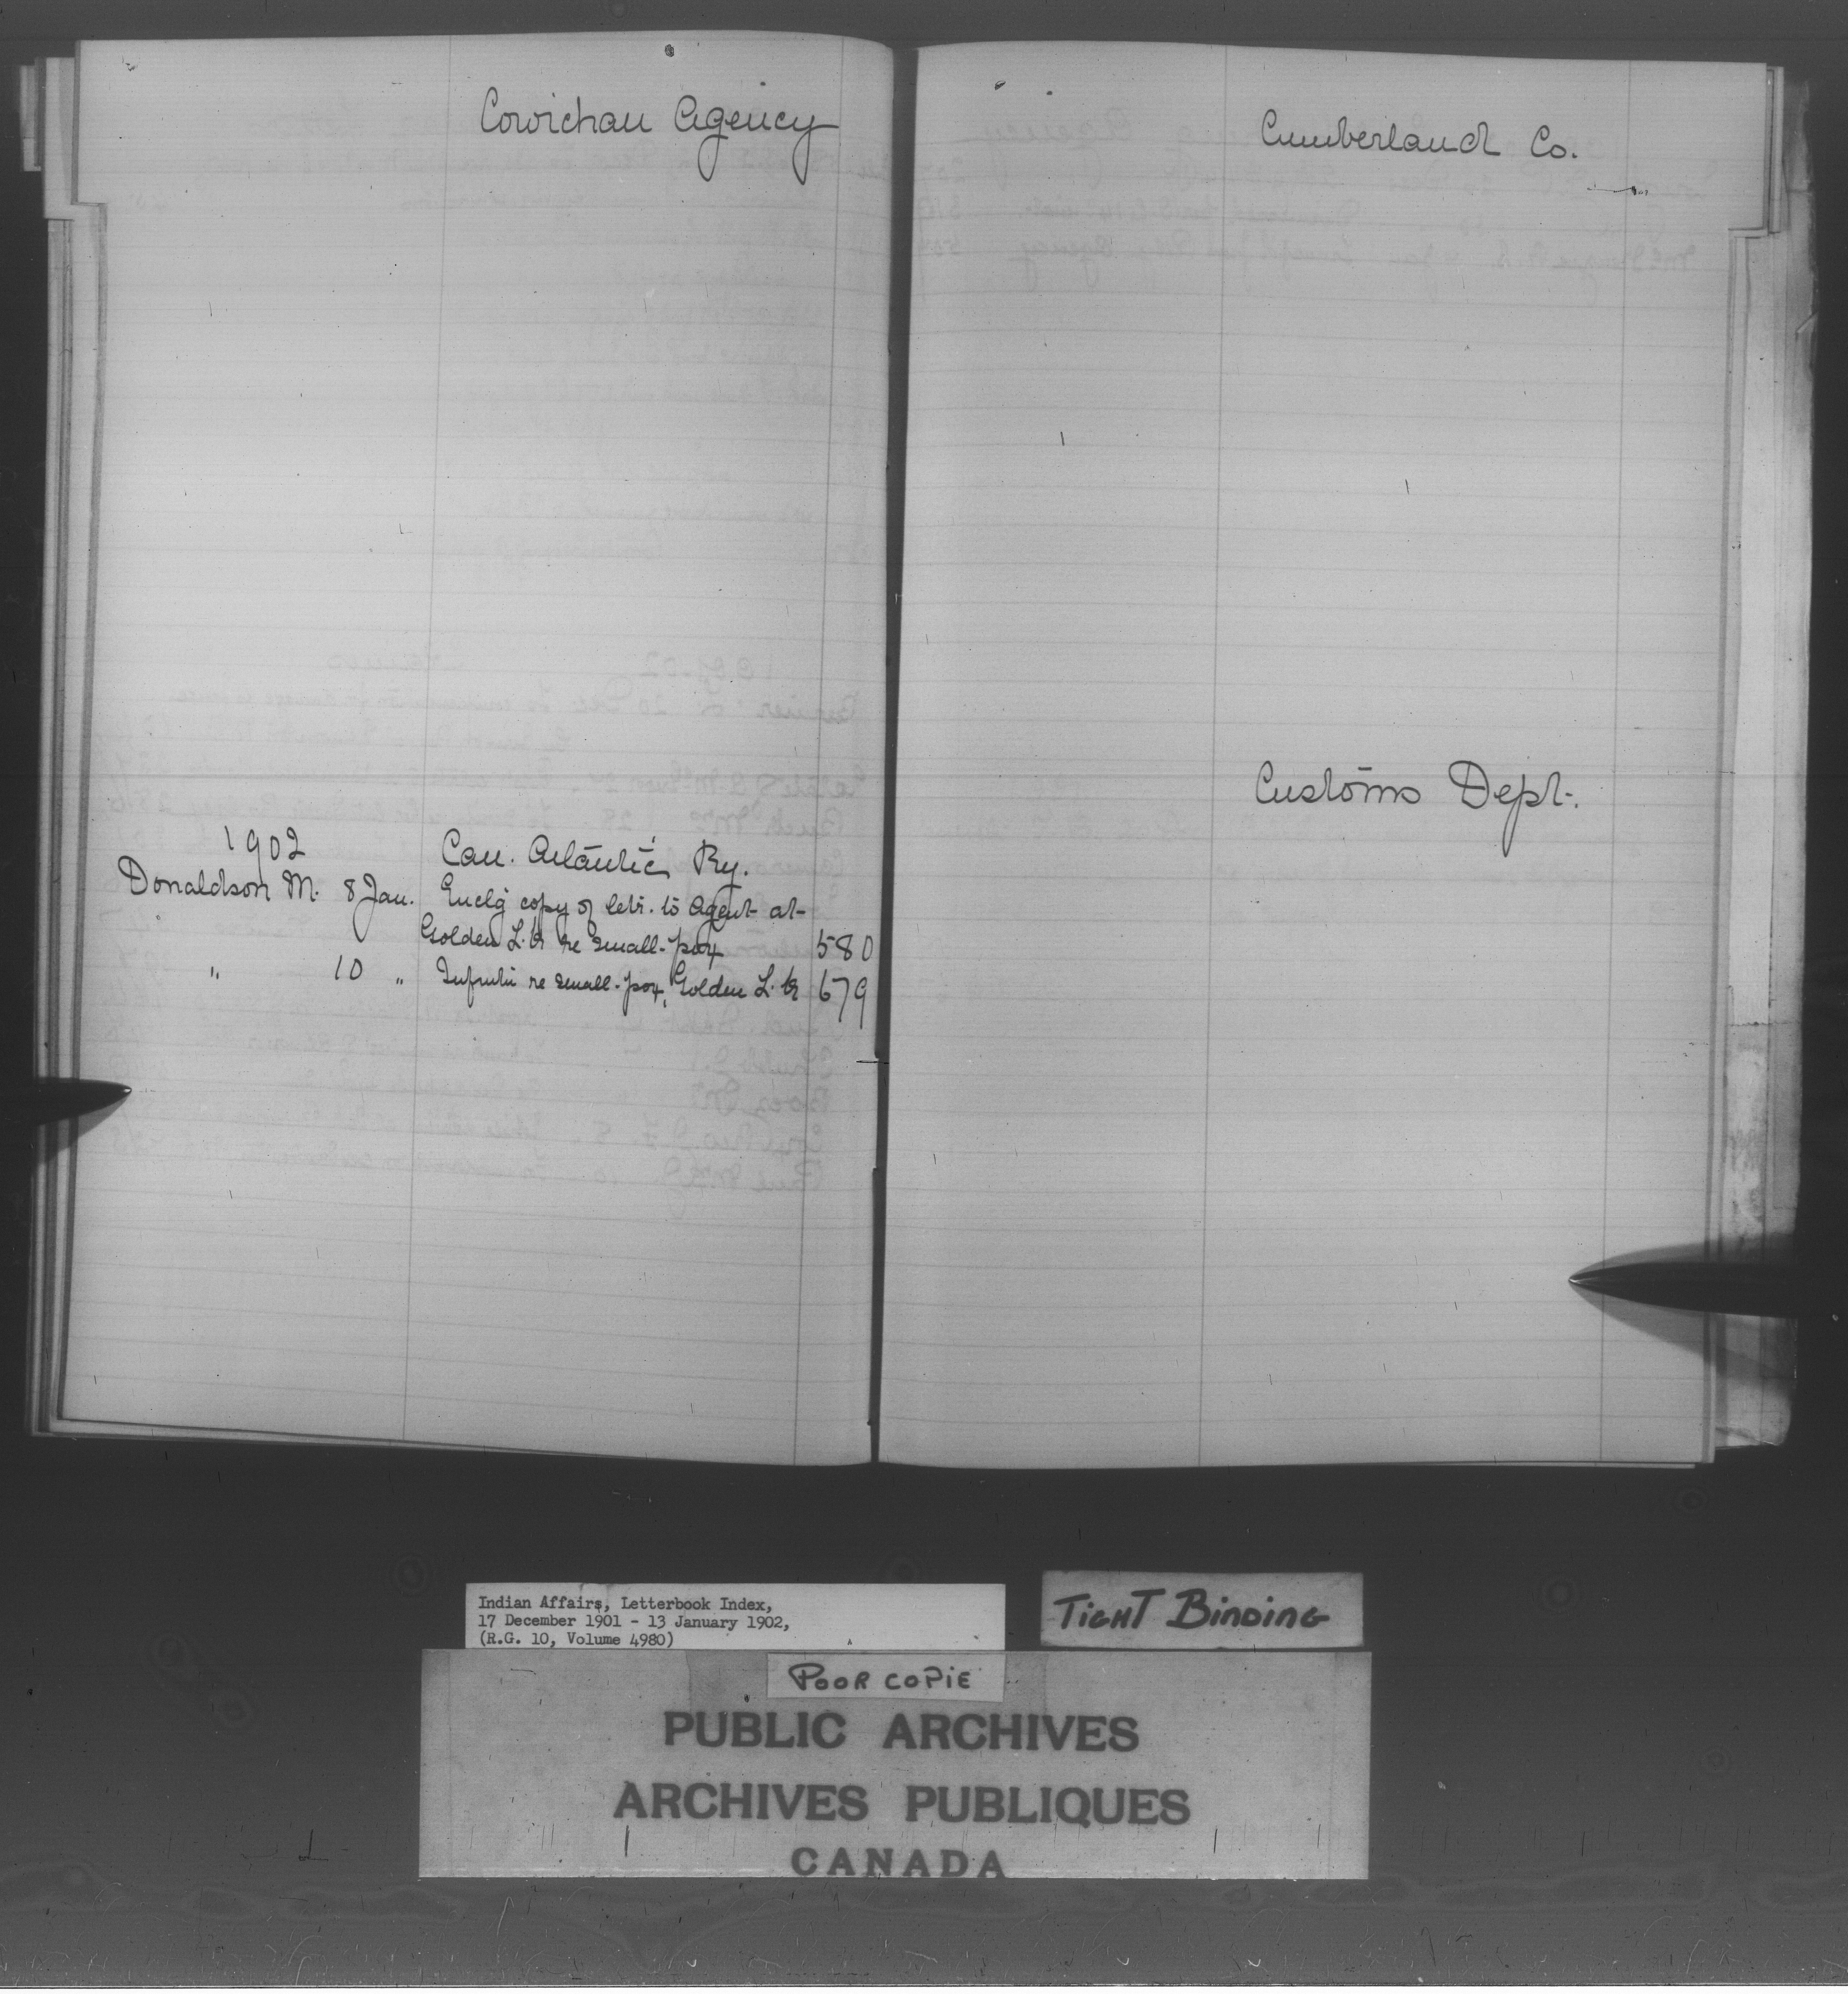 Cowichan Agency
1902
Can. Atlantic Ry.
Donaldson M. 8 Jan. Enclg copy of letr. to Agent at
Golden L. re small-pox 580
" 10 " Infmtn re small-pox, Golden L. 679
Cumberland Co.
Customs Dept.
Indian Affairs, Letterbook Index,
17 December 1901 - 13 January 1902,
(R.G. 10, Volume 4980)
TIGHT BINDING
POOR COPIE
PUBLIC ARCHIVES
ARCHIVES PUBLIQUES
CANADA